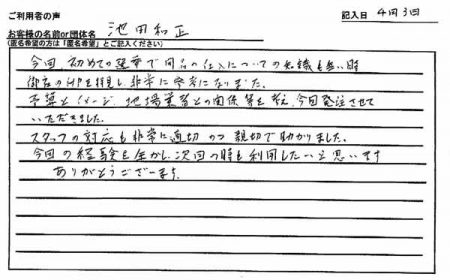 ご利用者の声
記入日 4月3日
お客様の名前or団体名 池田和正
(匿名希望の方は「匿名希望」とご記入ください)
今回 初めての選挙で 用品の仕入についての知識も無い時
御店のHPを拝見し 非常に参考になりました。
予算とイメージ、地場業者との関係等を考え、今回発注させて
いただきました。
スタッフの対応も非常に適切かつ親切で助かりました。
今回の経験を生かし、次回の時も利用したいと思います
ありがとうございます。